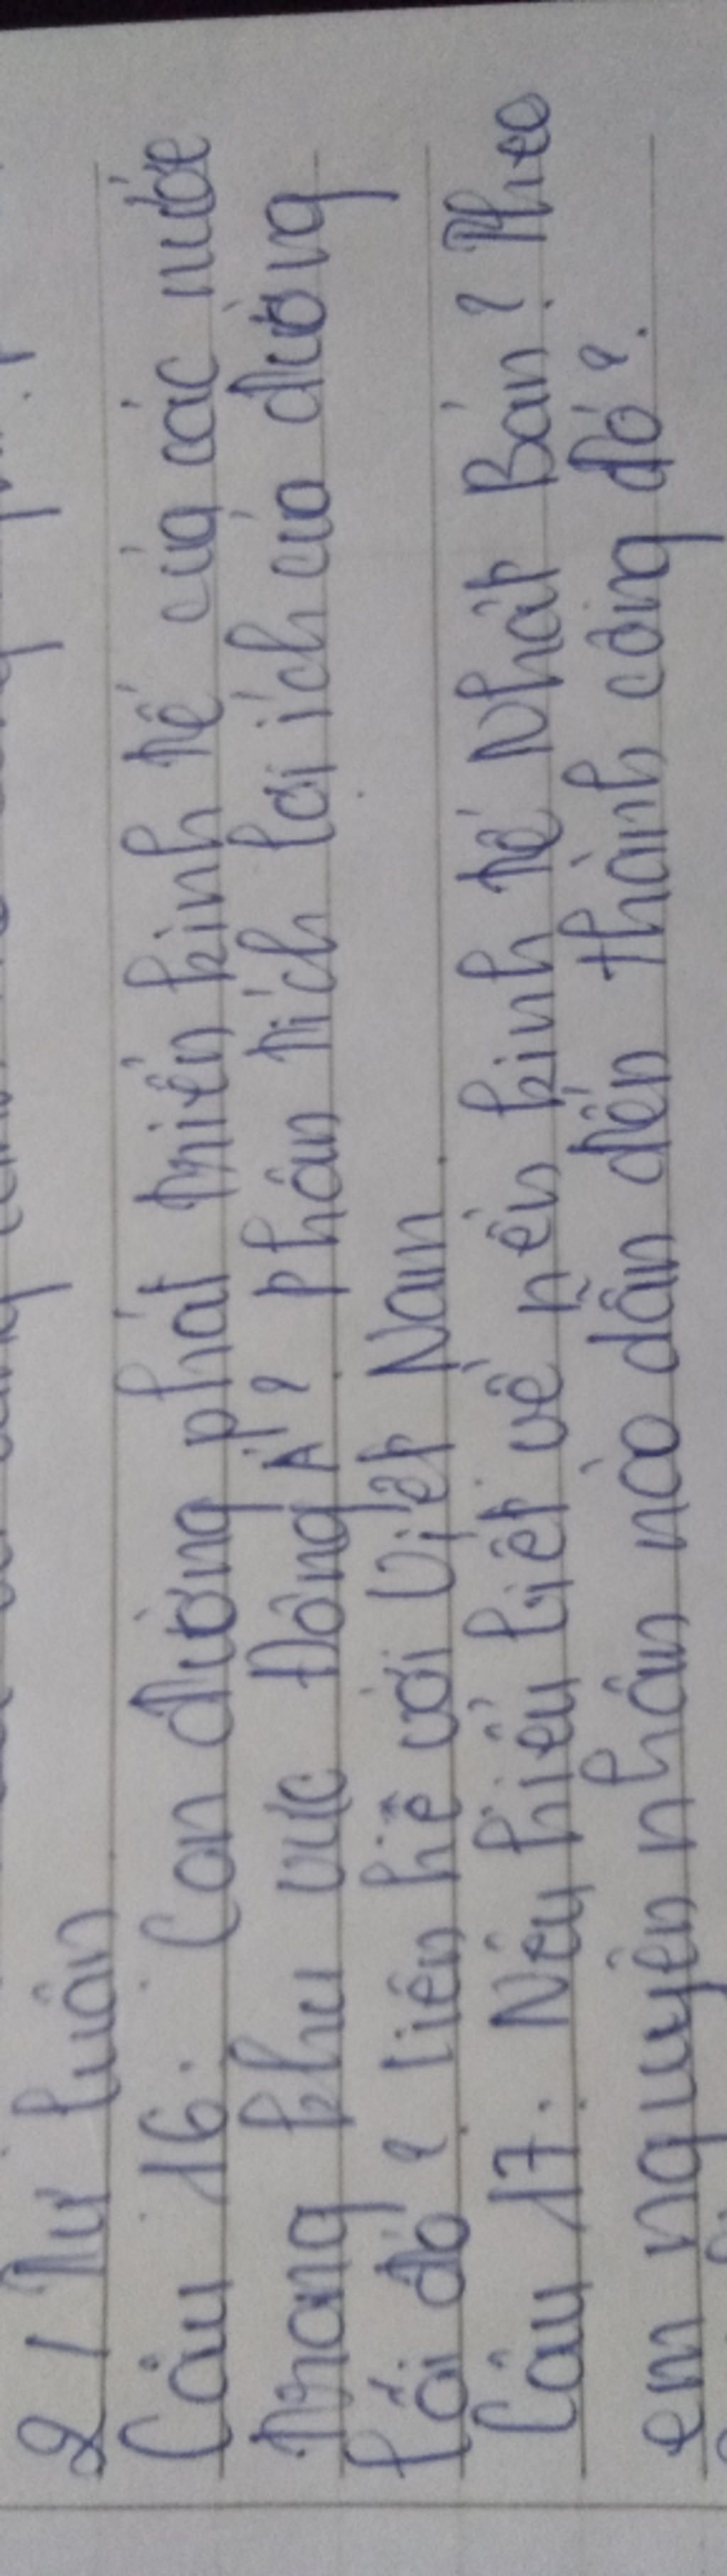 2 / Tự luận
Câu 16. Con đường phát triển kinh tế của các nước
trong khu vực Đông Á? phân tích lợi ích của đường
lối đó? liên hệ với Việt Nam.
Câu 17. Nêu hiểu biết về nền kinh tế Nhật Bản? Theo
em nguyên nhân nào dẫn đến thành công đó?